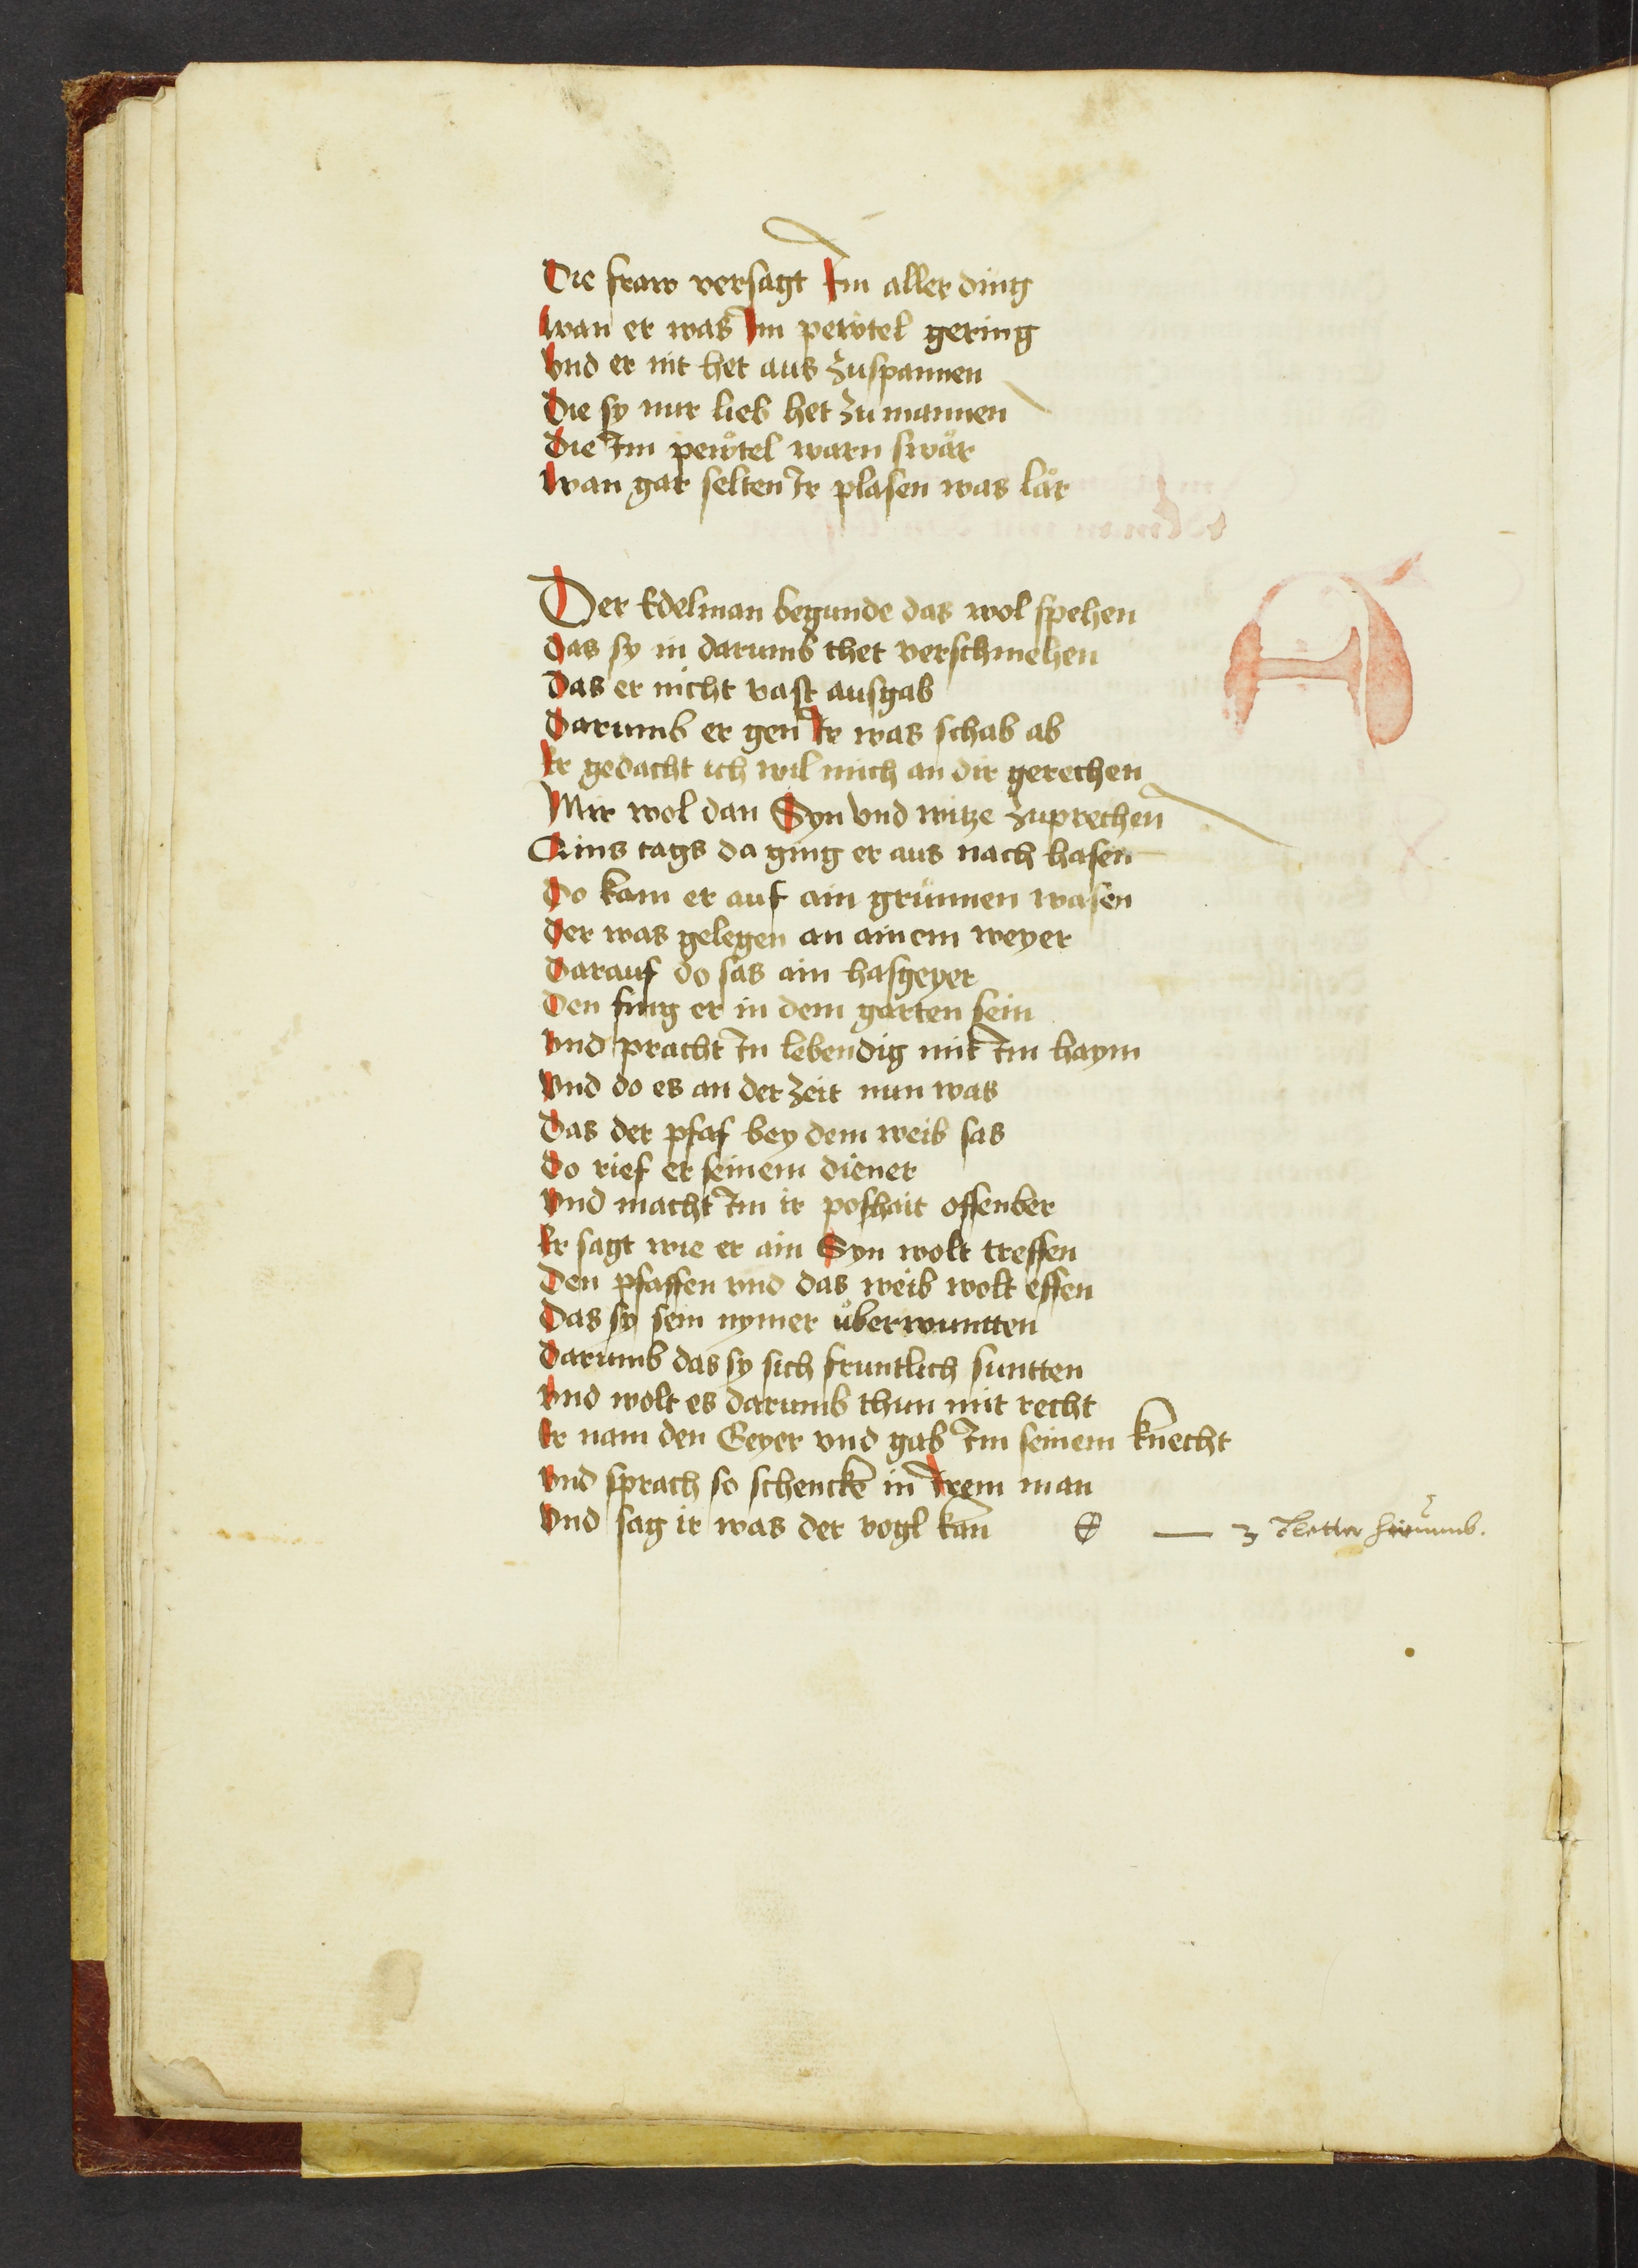 Die fraw versagt Im aller ding
wan er was Im pewtel gering
vnd er nit het aus zuspannen
Die sy nur lieb het zu mannen
die Im pewtel warn swår
wan gar selten Ir plasen was lår
Der Edelman begunde das wol spehen
das sy in darumb thet verschmehen
Das er nicht vast ausgab
Darumb er gen Ir was schab ab
Er gedacht ich wil mich an dir gerechen
Mir wol dan Syn vnd witze zuprechen
Ains tags da ging er aus nach hasen
Do kam er auf ain grünnen wasen
Der was gelegen an ainem weyer
Darauf do sas ain hasgeyer
Den fing er in dem garten sein
vnd pracht In lebendig mit Im haym
Vnd do es an der zeit nun was
Das der pfaf bey dem weib sas
Do rief er seinem diener
vnd macht Im ir poshait offenber
Er sagt wie er ain Syn wolt treffen
Den pfaffen vnd das weib wolt effen
Das sy sein nymer überwuntten
Darumb das sy sich fruntlich suntten
vnd wolt es darumb thun mit recht
Er nam den Geyer vnd gab Im seinem knecht
vnd sprach so schenck in Irem man
Vnd sag ir was der vogl kan — 3 Pletter hinumb.